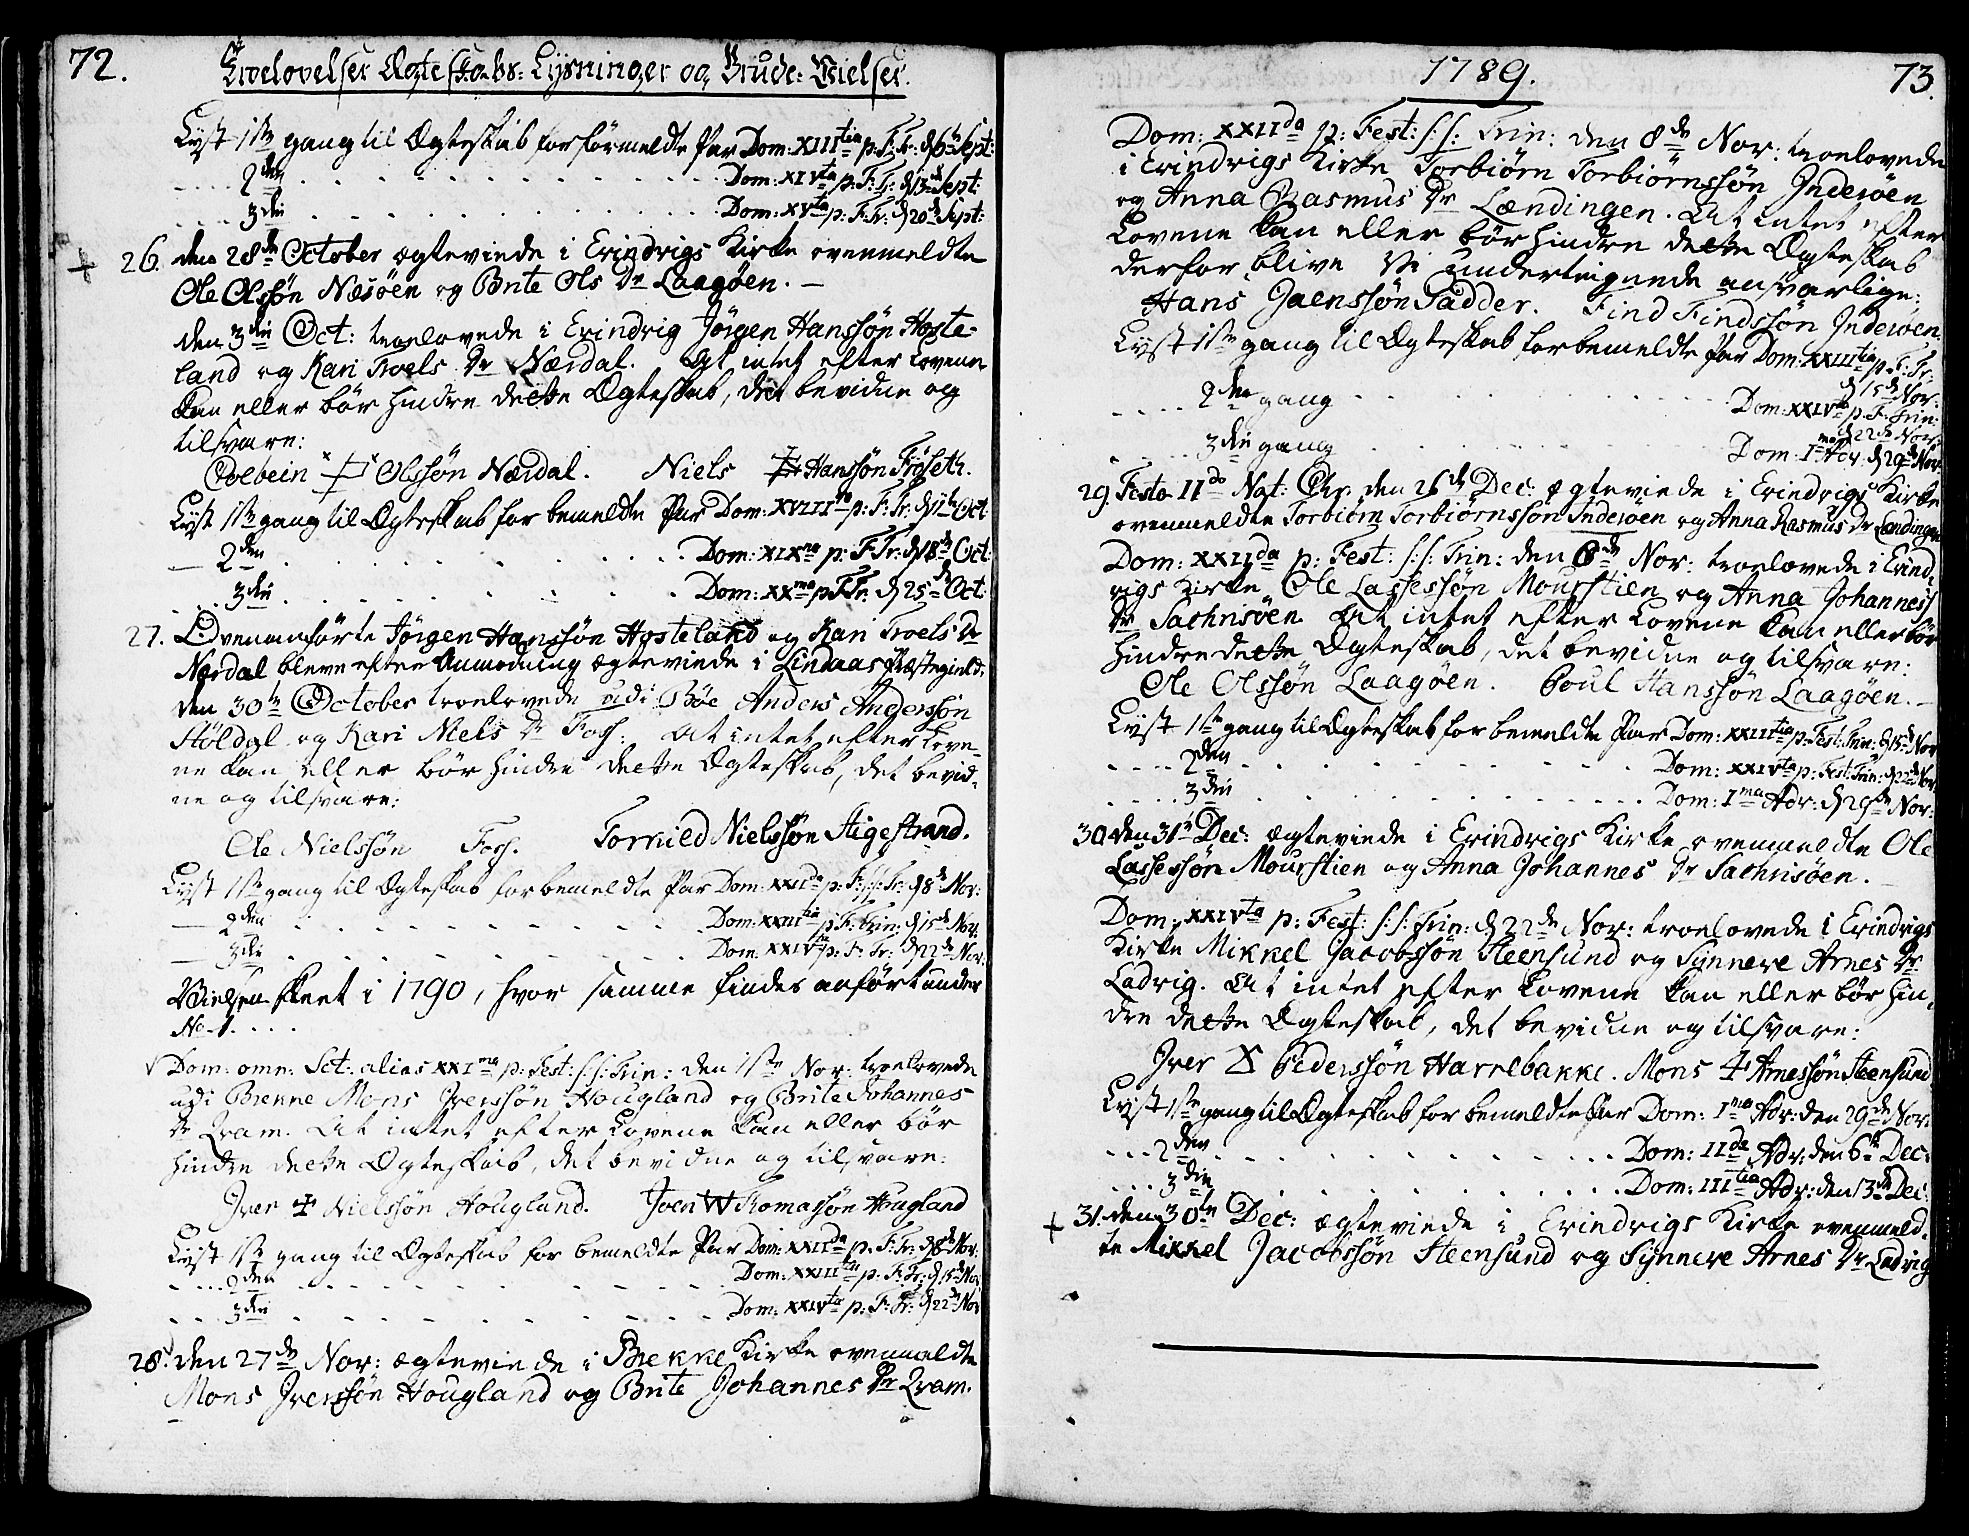 72.
Troelovelser Ægteskabs: Lysninger og Brude: Vielser.
Lyst 1ste gang til Ægteskab for førmeldte Par Dom: XIIItia p: F: Tr: d 6te Sept:
.... 2den . . . . . . . . Dom: XIVta p: F: Tr: d 13de Sept:
.... 3die . . . . . . . . Dom: XVta p: F: Tr: d 20de Sept:
+ 26. den 28de October ægteviede i Evindrigs Kirke ovenmeldte
Ole Olssøn Næsøen og Brite Ols Dr Laagøen. —
den 3die Oct: troelovede i Evindrig Jørgen Hanssøn Hoste-
land og Kari Troels Dr Nærdal. At intet efter Lovene
kan eller bør hindre dette Ægteskab, det bevidne og
tilsvare:
Colbein Olssøn Nærdal. Niels Hanssøn Frøseth.
Lyst 1ste gang til Ægteskab for bemeldte Par Dom: XVIIIva p: F: Tr: d 11te Oct:
— 2den . . . . . . . . Dom: XIXna p: F: Tr: d 18de Oct:
.... 3die . . . . . . . . Dom: XXma p F Tr: d 25de Oct:
27. Ovenanførte Jørgen Hanssøn Hosteland og Kari Troels Dr
Nærdal bleve efter Anmodning ægteviede i Lindaas Præstegield.
den 30te October troelovede udi Bøe Anders Anderssøn
Høldal og Kari Niels Dr Foss. At intet efter Love-
ne kan eller bør hindre dette Ægteskab, det bevid-
ne og tilsvare:
Ole Nielssøn Foss. Tormied Nielssøn Stigestrand.
Lyst 1ste gang til Ægteskab for bemeldte Par Dom: XXIIda p: F: S: S: Tr: d 8de Nov:
— 2den . . . . . . . . Dom: XXIIItia p: F: Trin: d 15de Nov:
— 3die . . . . . . . . Dom: XXIVta p: F: Tr: d 22de Nov:
Vielsen skeet i 1790, hvor samme findes anført under
No 1. . . .
√ Dom: omn: Sct: alias XXIma p: Fest: S: S: Trin: den 1ste Nov: troelovede
udi Brekke Mons Iverssøn Hougland og Brite Johannes
Dr Qvam. At intet efter Lovene kan eller bør
hindre dette Ægteskab, det bevidne og tilsvare:
Iver Nielssøn Hougland. Joen W Thomassøn Hougland
Lyst 1ste gang til Ægteskab for bemeldte Par Dom: XXIIda p: F: Tr: d 8de Nov:
.... 2den . . . . . . . . Dom: XXIIItia p: F: Tr: d 15de Nov
.... 3die . . . . . . . . Dom: XXIVta p: F: Tr: d 22de Nov
28. den 27de Nov: ægteviede i Brekke Kirke ovenmeldte
Mons Iverssøn Hougland og Brite Johannes Dr Qvam.
1789.
73.
Dom: XXIIda p: Fest: S: S: Trin: den 8de Nov: troelovede
i Evindrigs Kirke Torbiørn Torbiørnssøn Inderøen
og Anna Rasmus Dr Lændingen. At intet efter
Lovene kan eller bør hindre dette Ægteskab
derfor blive Vi undertegnede ansvarlige:
Hans Joenssøn Sadder. Find Findssøn Inderøen.
Lyst 1ste gang til Ægteskab for bemeldte Par Dom: XXIIItia p: F: Tr:
d 15de Nov:
.... 2den gang . . . . . . Dom: XXIVta p: F: Trin:
d 22de Nov:
.... 3die gang . . . . . . Dom: Ima Adv: d 29de Nov:
29. Festo IIdo Nat: Chr. den 26de Dec: ægteviede i Evindrigs Kirke
ovenmeldte Torbiørn Torbiørnssøn Inderøen og Anna Rasmus Dr Lændingen
Dom: XXIIda p: Fest: S: S: Trin: den 8de Nov: troelovede i Evind-
rigs Kirke Ole Lassessøn Mourstien og Anna Johannes
Dr Sachrisøen. At intet efter Lovene kan eller bør
hindre dette Ægteskab, det bevidne og tilsvare:
Ole Olssøn Laagøen. Poul Hanssøn Laagøen. —
Lyst 1ste gang til Ægteskab for bemeldte Par Dom: XXIIItia p: Fest: Trin: d 15de Nov
.... 2den . . . . . . . . Dom: XXIVta p: Fest: Trin: d 22de Nov:
.... 3die . . . . . . . . Dom: Ima Adv: d 29de Nov:
30. den 31te Dec: ægteviede i Evindrigs Kirke ovenmeldte Ole
Lassessøn Mourstien og Anna Johannes Dr Sachrisøen. —
Dom: XXIVta p: Fest: S: S: Trin: d 22de Nov: troelovede i Evindrigs
Kirke Mikkel Jacobssøn Steensund og Synneve Arnes Dr
Ladvig. At intet efter Lovene kan eller bør hin-
dre dette Ægteskab, det bevidne og tilsvare:
Iver Pederssøn Harrebakke. Mons Arnessøn Steensund
Lyst 1ste gang til Ægteskab for bemeldte Par Dom: Ima Adv: den 29de Nov:
.... 2den . . . . . . . . Dom: IIda Adv: den 6te Dec:
.... 3die . . . . . . . . Dom: IIItia Adv: den 13de Dec:
+ 31. den 30te Dec: ægteviede i Evindrigs Kirke ovenmeld-
te Mikkel Jacobssøn Steensund og Synneve Arnes Dr Ladvig